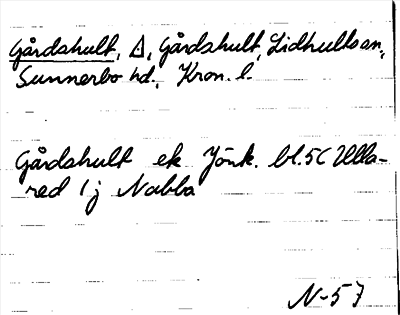 Gårdshult, Δ, Gårdshult, Lidhults sn,
Sunnerbo hd., Kron. l.
Gårdshult ek Jönk. bl. 5C Ulla-
red 1j Nabba
N-57